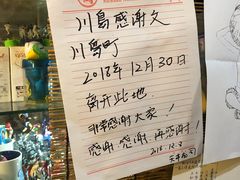 川島感谢文
川島町
2018年12月30日
离开此地
非常感谢大家！
感谢、感谢、再感谢才！
2018.12.2